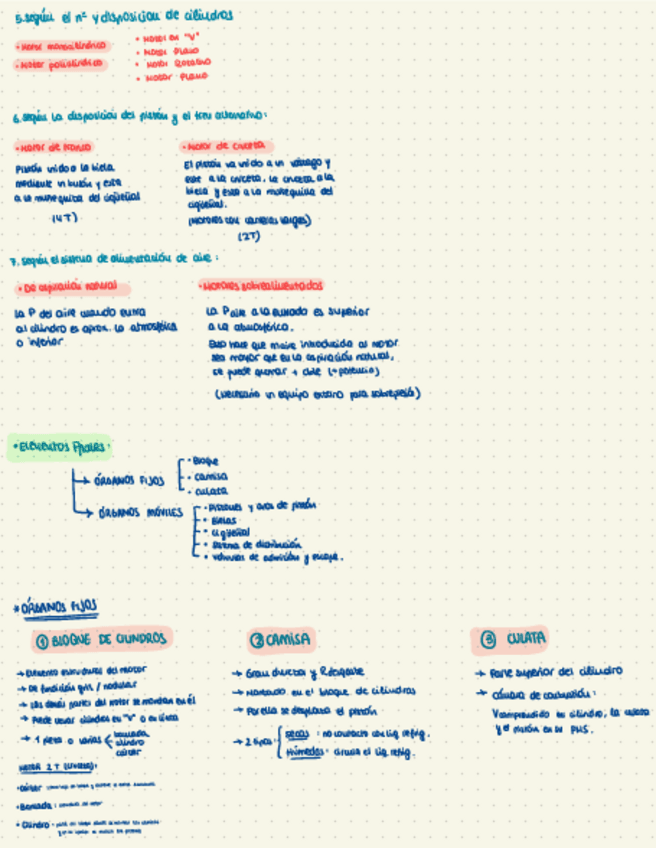 5. según el nº y disposición de cilindros
• Motor monocilíndrico
• Motor policilíndrico
• Motor en "V"
• Motor Plano
• Motor Rotativo
• Motor Plano
6. según la disposición del pistón y el tren alternativo:
• Motor de tronco
Pistón unido a la biela
mediante un bulón y esta
a la muñequilla del cigüeñal
(4T)
• Motor de cruceta
El pistón va unido a un vástago y
este a la cruceta, la cruceta a la
biela y esta a la muñequilla del
cigüeñal.
(Motores con carreras largas)
(2T)
7. según el sistema de alimentación de aire:
• De aspiración natural
La P del aire cuando entra
al cilindro es aprox. la atmosférica
o inferior.
• Motores sobrealimentados
La P aire a la entrada es superior
a la atmosférica.
Esto hace que maire introducida al motor
sea mayor que en la aspiración natural,
se puede quemar + cble (+ potencia)
(necesario un equipo externo para sobrepresión)
• ELEMENTOS PPALES:
ÓRGANOS FIJOS
• Bloque
• Camisa
• Culata
ÓRGANOS MÓVILES
• Pistones y aros de pistón
• Bielas
• Cigüeñal
• Sistema de distribución
• Válvulas de admisión y escape.
* ÓRGANOS FIJOS
① BLOQUE DE CILINDROS
→ Elemento estructural del motor
→ De fundición gris / nodular
→ Las demás partes del motor se montan en él
→ Puede tener cilindros en "V" o en línea
→ 1 pieza o varias
bancada
cilindro
cárter
MOTOR 2T (LENTOS):
• Cárter
• Bancada:
• Cilindro
② CAMISA
→ Gran dureza y Rdesgaste
→ Montado en el bloque de cilindros
→ Por ella se desplaza el pistón
→ 2 tipos:
secas: no contacto con líq. refrig.
húmedas: circula el líq. refrig.
③ CULATA
→ Parte superior del cilindro
→ Cámara de combustión:
V comprendido en cilindro, la culata
y el pistón en su PMS.